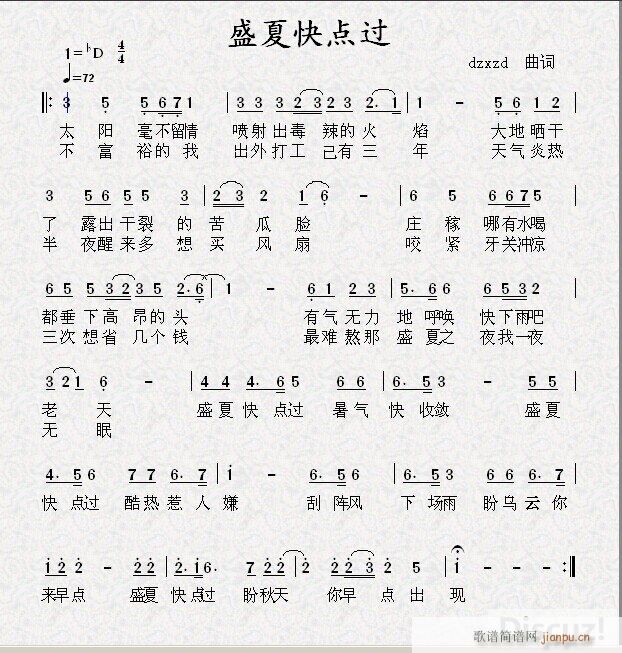 盛夏快点过
1=♭D 4/4
♩=72
dzxzd 曲词
3 5 5 6 7 | 3 3 3 2 3 2 3 2. 1 | 1 - 5 6 1 2 |
太 阳 毫不留情 喷射出毒 辣的火 焰 大地晒干
不 富 裕的我 出外打工 己有三 年 天气炎热
3 5 6 5 5 3 | 2 3 2 1 6 - | 6 5 6 6 7 5 |
了 露出干裂 的 苦 瓜 脸 庄 稼 哪有水喝
半 夜醒来多 想 买 风 扇 咬 紧 牙关冲凉
6 5 5 3 2 3 5 2. 6 | 1 - 6 1 2 3 | 5. 6 6 6 5 3 2 |
都垂下高 昂的头 有气无力 地 呼唤 快下雨吧
三次想省 几个钱 最难熬那 盛 夏之 夜我一夜
3 2 1 6 - | 4 4 4. 6 5 6 6 | 6. 5 3 - 5 5 |
老 天 盛夏快点过 暑气 快收敛 盛夏
无 眠
4. 5 6 7 7 6. 7 | i - 6. 5 6 | 6. 5 3 6 6 6. 7 |
快点过 酷热惹人嫌 刮阵风 下场雨 盼乌云你
i 2 2 - 2 2 | 2. i 6. 7 2 2 | 2 2 2 2 5 | i - - - :||
来早点 盛夏快点过 盼秋天 你早点出现
Discuz!
歌谱简谱网
jianpu.cn